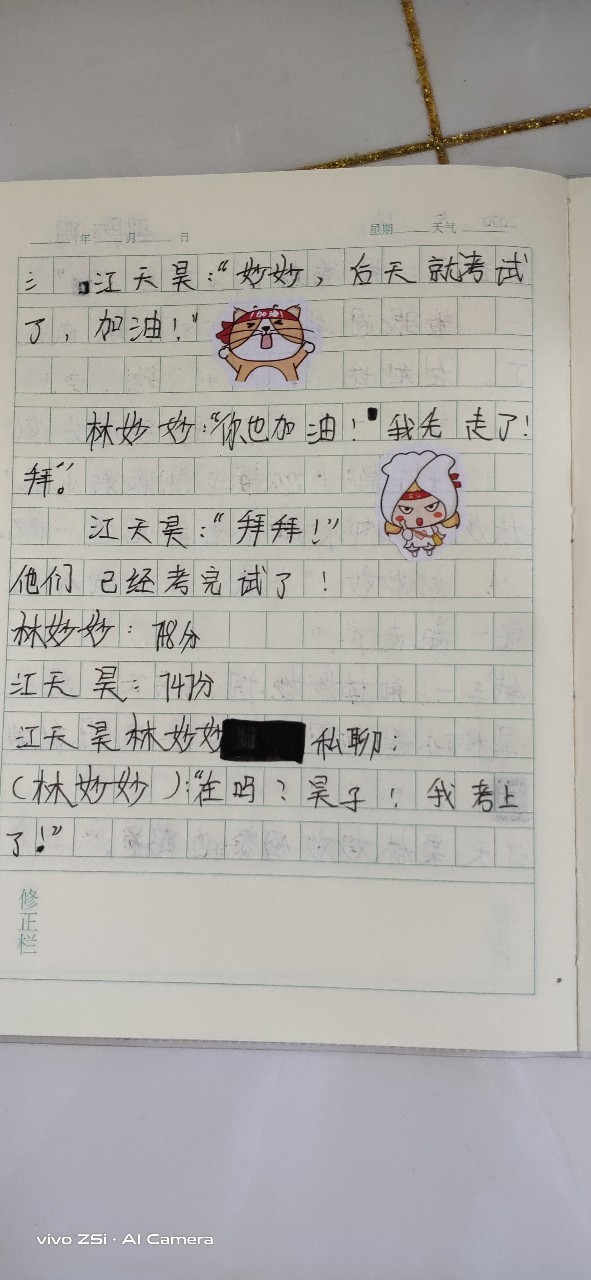 年 月 日 星期 天气
江天昊：“妙妙，后天就考试
了，加油！”
加油
林妙妙：“你也加油！我先走了！
拜。”
江天昊：“拜拜！”
他们已经考完试了！
林妙妙：
江天昊：747分
江天昊林妙妙 私聊：
（林妙妙）：“在吗？昊子！我考上
了！”
修正栏
vivo Z5i · AI Camera